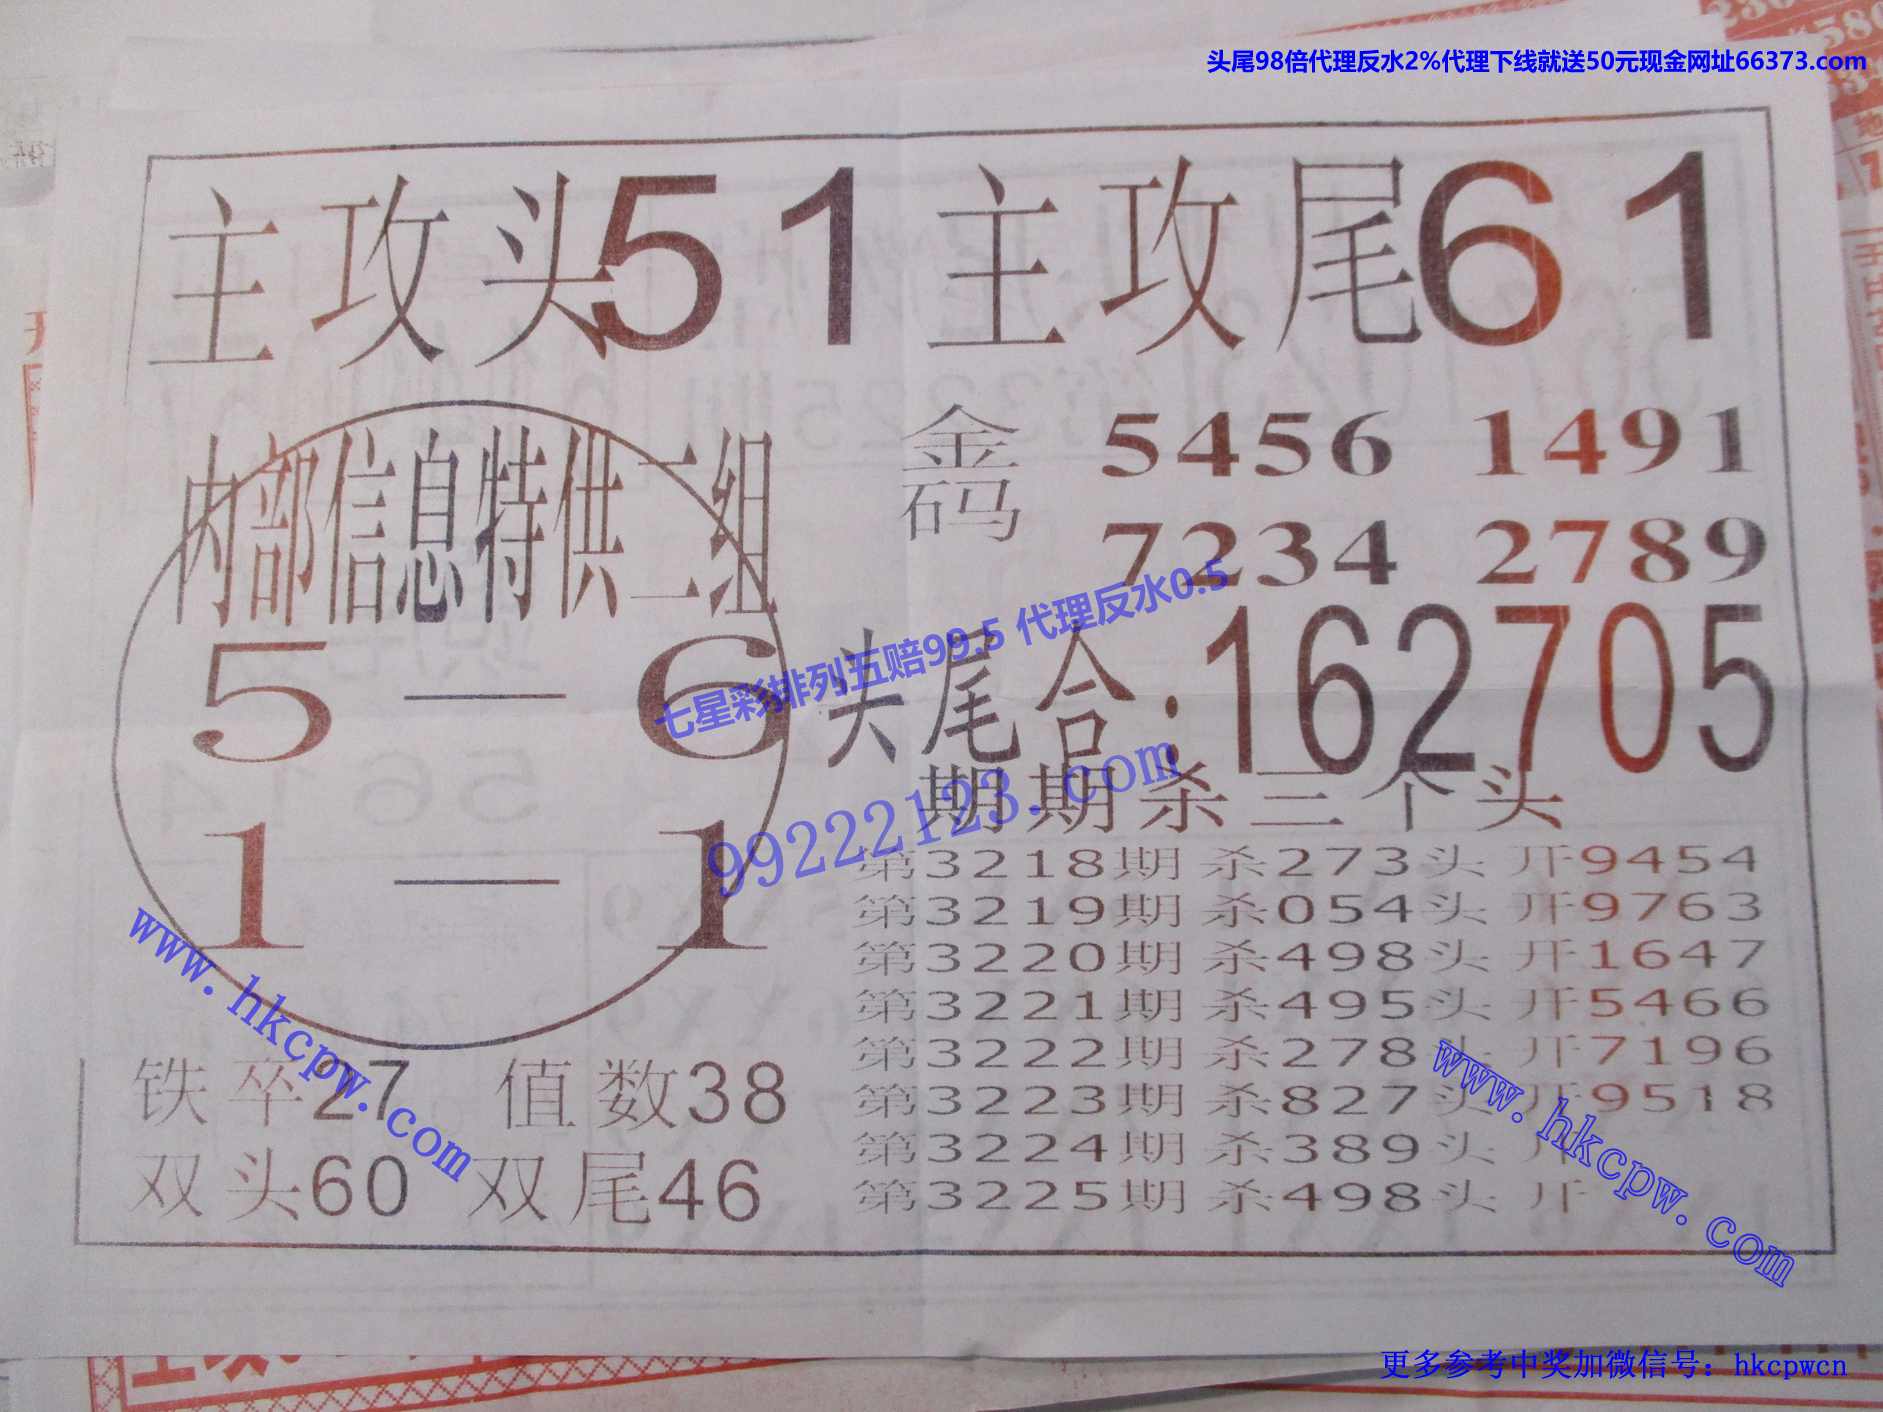 头尾98倍代理反水2%代理下线就送50元现金网址66373.com
主攻头51 主攻尾61
内部信息特供二组
5—6
1—1
金码
5456 1491
7234 2789
七星彩排列五赔99.5 代理反水0.5
99222123.com
头尾合:162705
期期杀三个头
第3218期 杀273头 开9454
第3219期 杀054头 开9763
第3220期 杀498头 开1647
第3221期 杀495头 开5466
第3222期 杀278头 开7196
第3223期 杀827头 开9518
第3224期 杀389头 开
第3225期 杀498头 开
www.hkcpw.com
铁卒27 值数38
双头60 双尾46
www.hkcpw.com
更多参考中奖加微信号：hkcpwcn